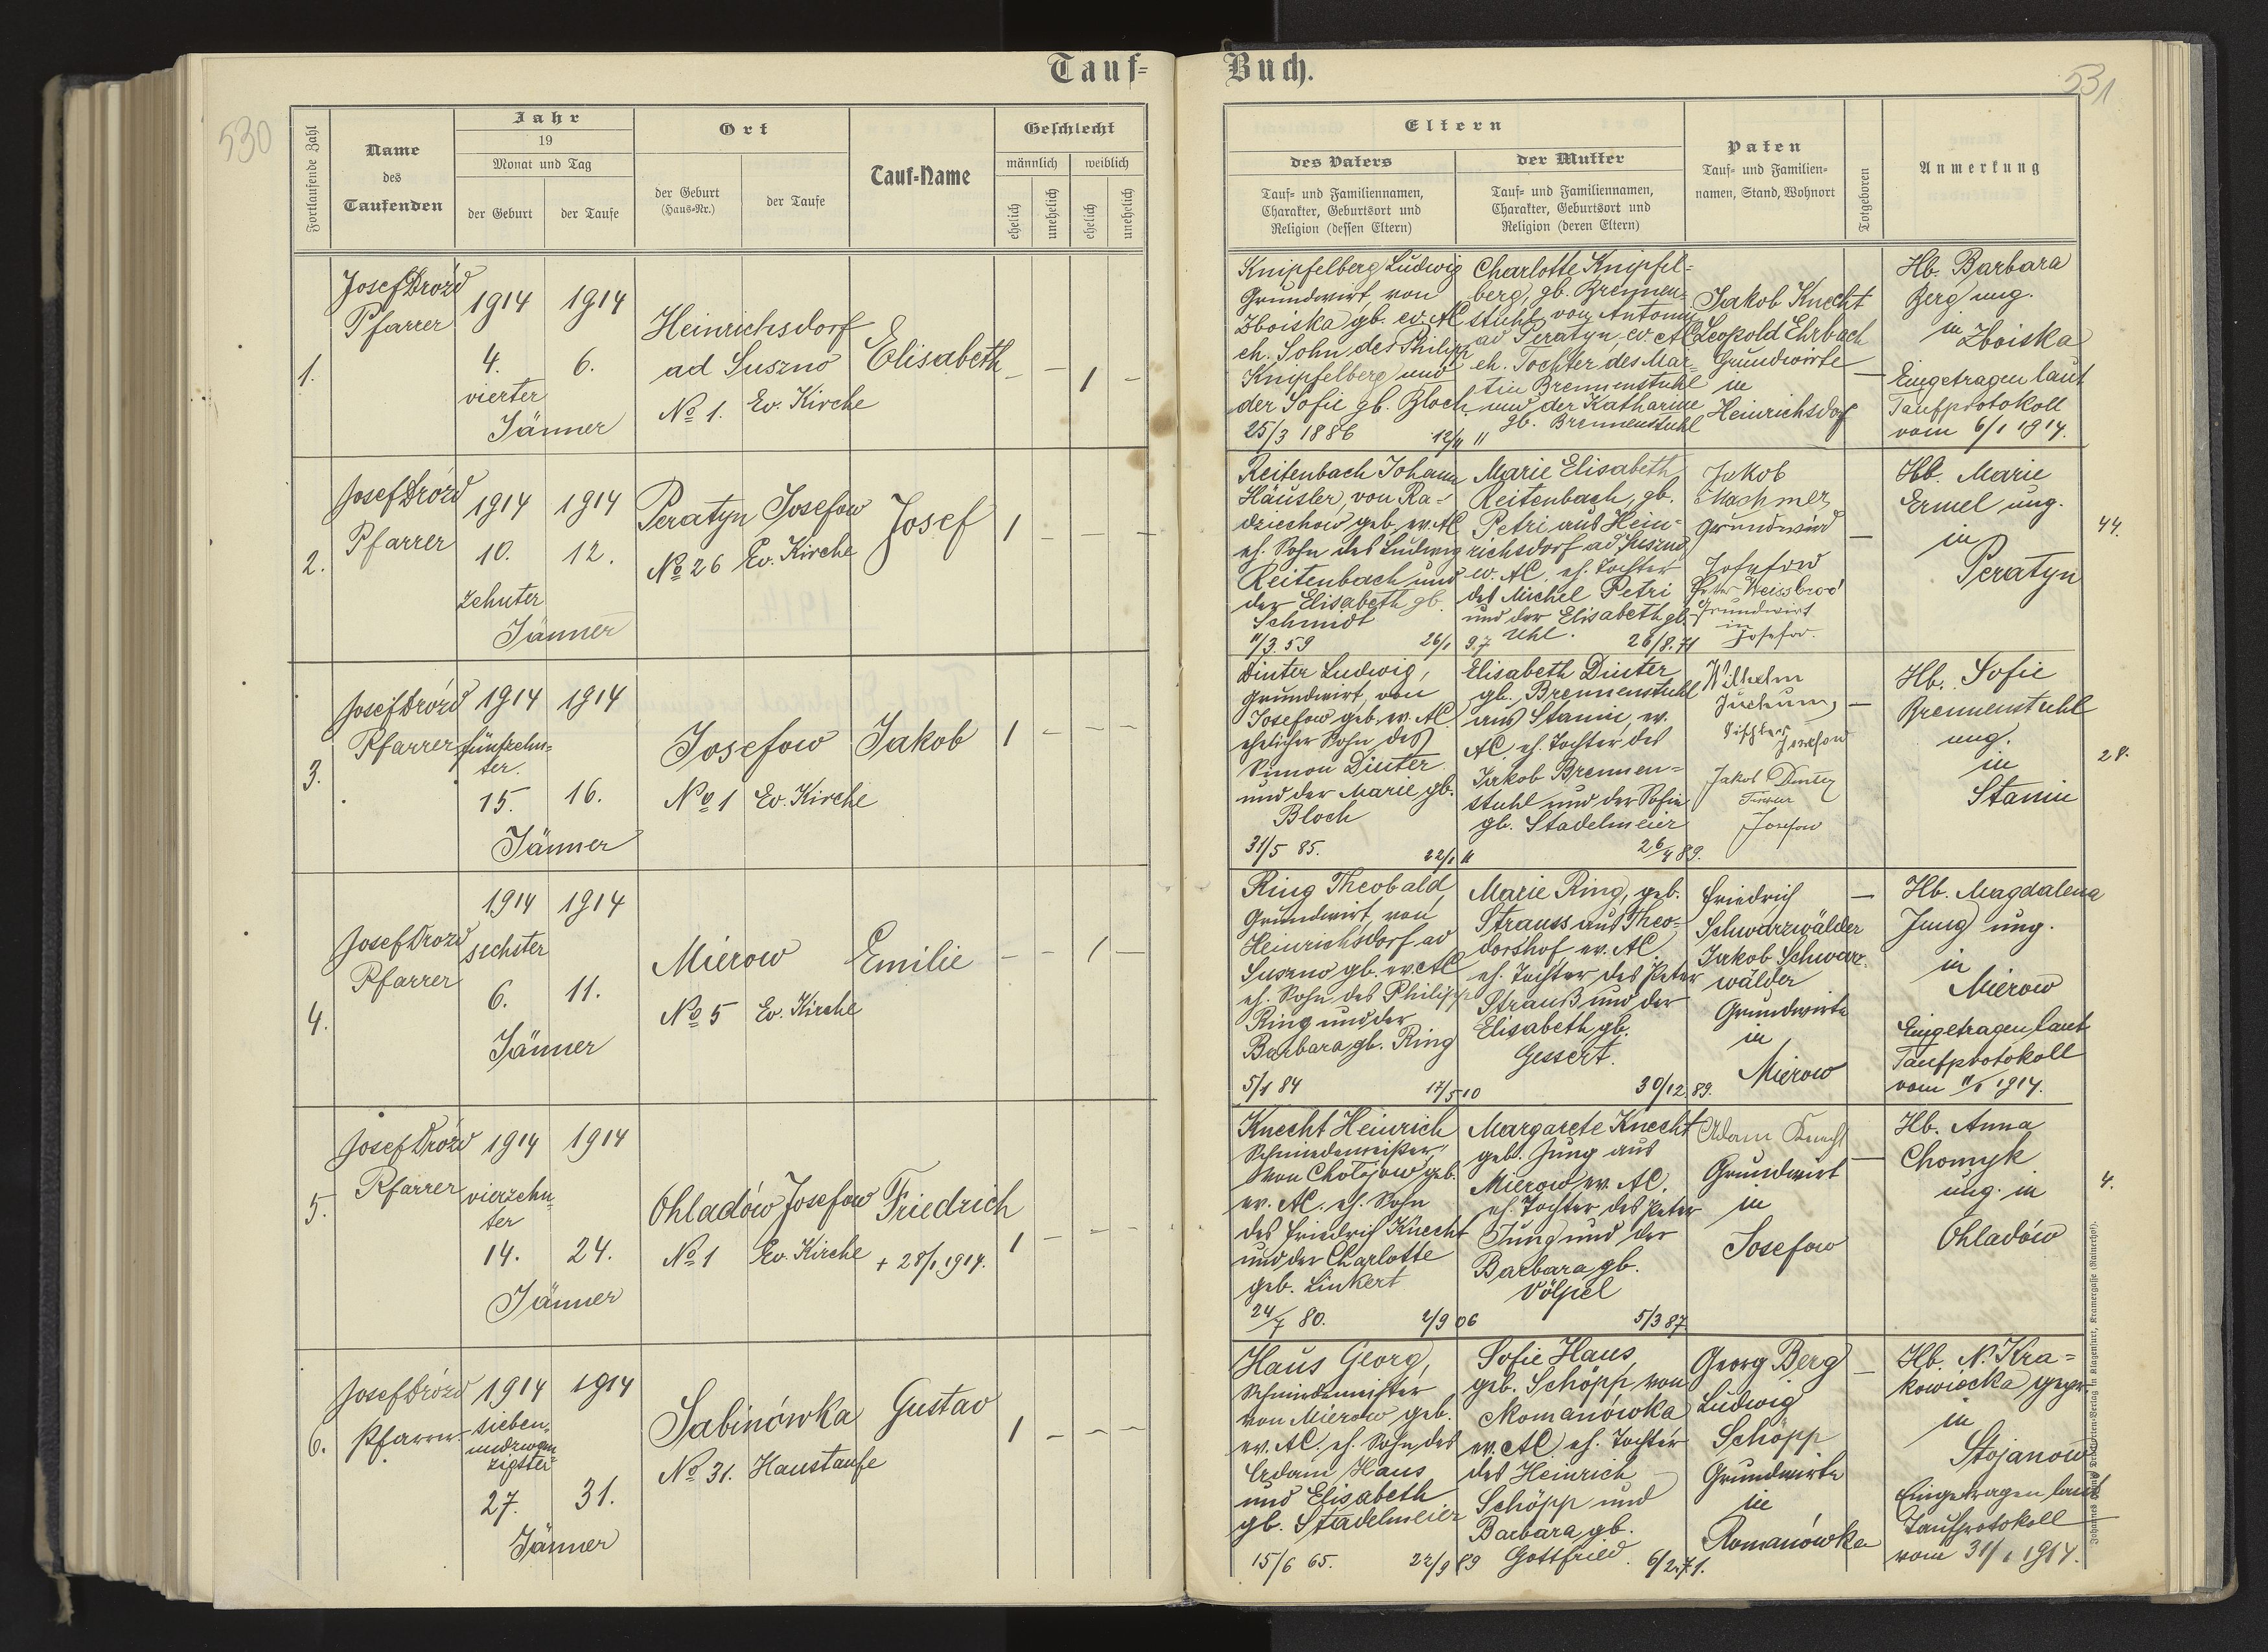 Tauf=
530
Fortlaufende Zahl
Name
des
Taufenden
Jahr
19
Monat und Tag
der Geburt
der Taufe
Ort
der Geburt
(Haus=Nr.)
der Taufe
Tauf=Name
Geschlecht
männlich
weiblich
ehelich
unehelich
ehelich
unehelich
1.
Josef Drózd
Pfarrer
1914
4.
vierter
Jänner
1914
6.
Heinrichsdorf
ad Suszno
No 1. Ev. Kirche
Elisabeth
– – 1 –
2.
Josef Drózd
Pfarrer
1914
10.
zehnter
Jänner
1914
12.
Peratyn
No 26
Josefow
Ev. Kirche
Josef
1 – – –
3.
Josef Drózd
Pfarrer
1914
fünfzehn=
ter.
15.
Jänner
1914
16.
Josefow
No 1 Ev. Kirche
Jakob
1 – – –
4.
Josef Drozd
Pfarrer
1914
sechster
6.
Jänner
1914
11.
Mierow
No 5 Ev. Kirche
Emilie
– – 1 –
5.
Josef Drózd
Pfarrer
1914
vierzehn=
ter
14.
Jänner
1914
24.
Ohladów
No 1
Josefow
Ev. Kirche
Friedrich
+ 28/1 1914.
1 – – –
6.
Josef Drózd
Pfarrer
1914
sieben=
undzwan=
zigster
27.
Jänner
1914
31.
Sabinówka
No 31. Haustaufe
Gustav
1 – – –
Buch.
531
Eltern
des Vaters
Tauf= und Familiennamen,
Charakter, Geburtsort und
Religion (dessen Eltern)
der Mutter
Tauf= und Familiennamen,
Charakter, Geburtsort und
Religion (deren Eltern)
Paten
Tauf= und Familien=
namen, Stand, Wohnort
Totgeboren
Anmerkung
Knipfelberg Ludwig
Grundwirt, von
Zboiska gb. ev. AC
eh. Sohn des Philipp
Knipfelberg und
der Sofie gb. Bloch
25/3 1886
12/4 11
Charlotte Knipfel=
berg, gb. Brennen=
stuhl, von Antonin
ad Peratyn ev. AC
eh. Tochter des Mar=
tin Brennenstuhl
und der Katharine
gb. Brennenstuhl
Jakob Knecht
Leopold Ehrbach
Grundwirte
in
Heinrichsdorf
–
Hb. Barbara
Berg ung.
in Zboiska
Eingetragen laut
Taufprotokoll
vom 6/1 1914.
Reitenbach Johann
Häusler, von Ra=
dziechow geb. ev. AC
eh. Sohn des Ludwig
Reitenbach und
der Elisabeth gb.
Schmidt
11/3. 59
26/1 97
Marie Elisabeth
Reitenbach, gb.
Petri aus Hein=
richsdorf ad Suszno
ev. AC. eh. Tochter
des Michel Petri
und der Elisabeth gb.
Uhl.
26/8. 71
Jakob
Machmer
Grundwird
Josefow
Peter Weissbrod
Grundwirt
in
Josefow.
–
Hb. Marie
Ermel ung.
in
Peratyn
44.
Dinter Ludwig,
Grundwirt, von
Josefow geb. ev. AC
ehelicher Sohn des
Simon Dinter
und der Marie gb.
Bloch
31/5 85.
22/1 11
Elisabeth Dinter
gb. Brennenstuhl
aus Stanin, ev.
AC. eh. Tochter des
Jakob Brennen=
stuhl und der Sofie
gb. Stadelmeier
26/4 89.
Wilhelm
Juchum,
Tischler
Josefow
Jakob Dinter
Josefow
–
Hb. Sofie
Brennenstuhl
ung.
in
Stanin
28.
Ring Theobald,
Grundwirt, von
Heinrichsdorf ad
Suszno gb. ev. AC
eh. Sohn des Philipp
Ring und der
Barbara gb. Ring
5/1 84
17/5 10
Marie Ring, geb.
Strauss aus Theo=
dorshof, ev. AC.
eh. Tochter des Peter
Strauß und der
Elisabeth gb.
Gessert.
30/12. 89.
Friedrich
Schwarzwälder
Jakob Schwarz=
wälder
Grundwirte
in
Mierow
–
Hb. Magdalena
Jung ung.
in
Mierow
Eingetragen laut
Taufprotokoll
vom 11/1 1914.
Knecht Heinrich
Schmiedemeister,
von Cholojow geb.
ev. AC. eh. Sohn
des Friedrich Knecht
und der Charlotte
geb. Linkert
24/7 80.
2/9 06
Margarete Knecht
geb. Jung aus
Mierow ev. AC.
eh. Tochter des Peter
Jung und der
Barbara gb.
Völpel
5/3 87
Adam Knecht
Grundwirt
in
Josefow
–
Hb. Anna
Chomyk
ung. in
Ohladów
4.
Haus Georg,
Schmiedemeister
von Mierow geb.
ev. AC. eh. Sohn des
Adam Haus
und Elisabeth
gb. Stadelmeier
15/6 65.
22/9 89
Sofie Haus
geb. Schöpp von
Romanówka
ev. AC eh. Tochter
des Heinrich
Schöpp und
Barbara gb.
Gottfried.
6/2. 71.
Georg Berg
Ludwig
Schöpp
Grundwirte
in
Romanówka
–
Hb. N. Kra=
kowiecka gepr.
in
Stojanow
Eingetragen laut
Taufprotokoll
vom 31/1 1914.